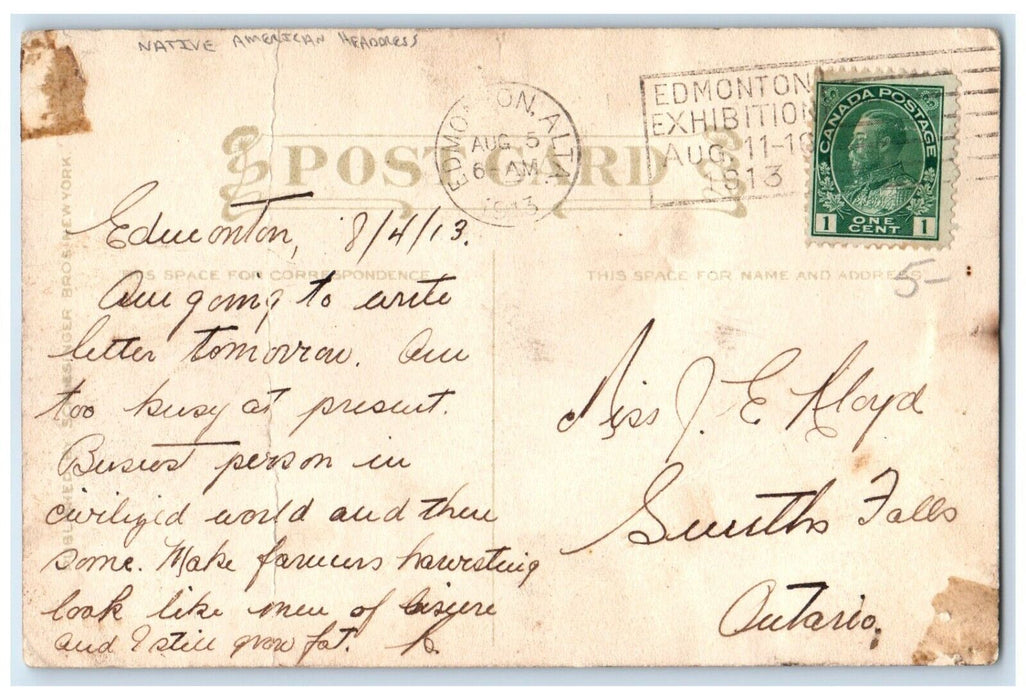 NATIVE AMERICAN HEADDRESS
EDMONTON, ALTA.
AUG 5
6-AM
1913
EDMONTON
EXHIBITION
AUG. 11-16
1913
CANADA POSTAGE
1 ONE CENT 1
POST CARD
THIS SPACE FOR CORRESPONDENCE
THIS SPACE FOR NAME AND ADDRESS
5-
Edmonton, 8/4/13.
Am going to write
letter tomorrow. Am
too busy at present.
Busiest person in
civilized world and then
some. Make farmers harvesting
look like men of leisure
and I still grow fat.
Miss J. E. Lloyd
Smiths Falls
Ontario.
PUBLISHED BY SCHLESINGER BROS. NEW YORK